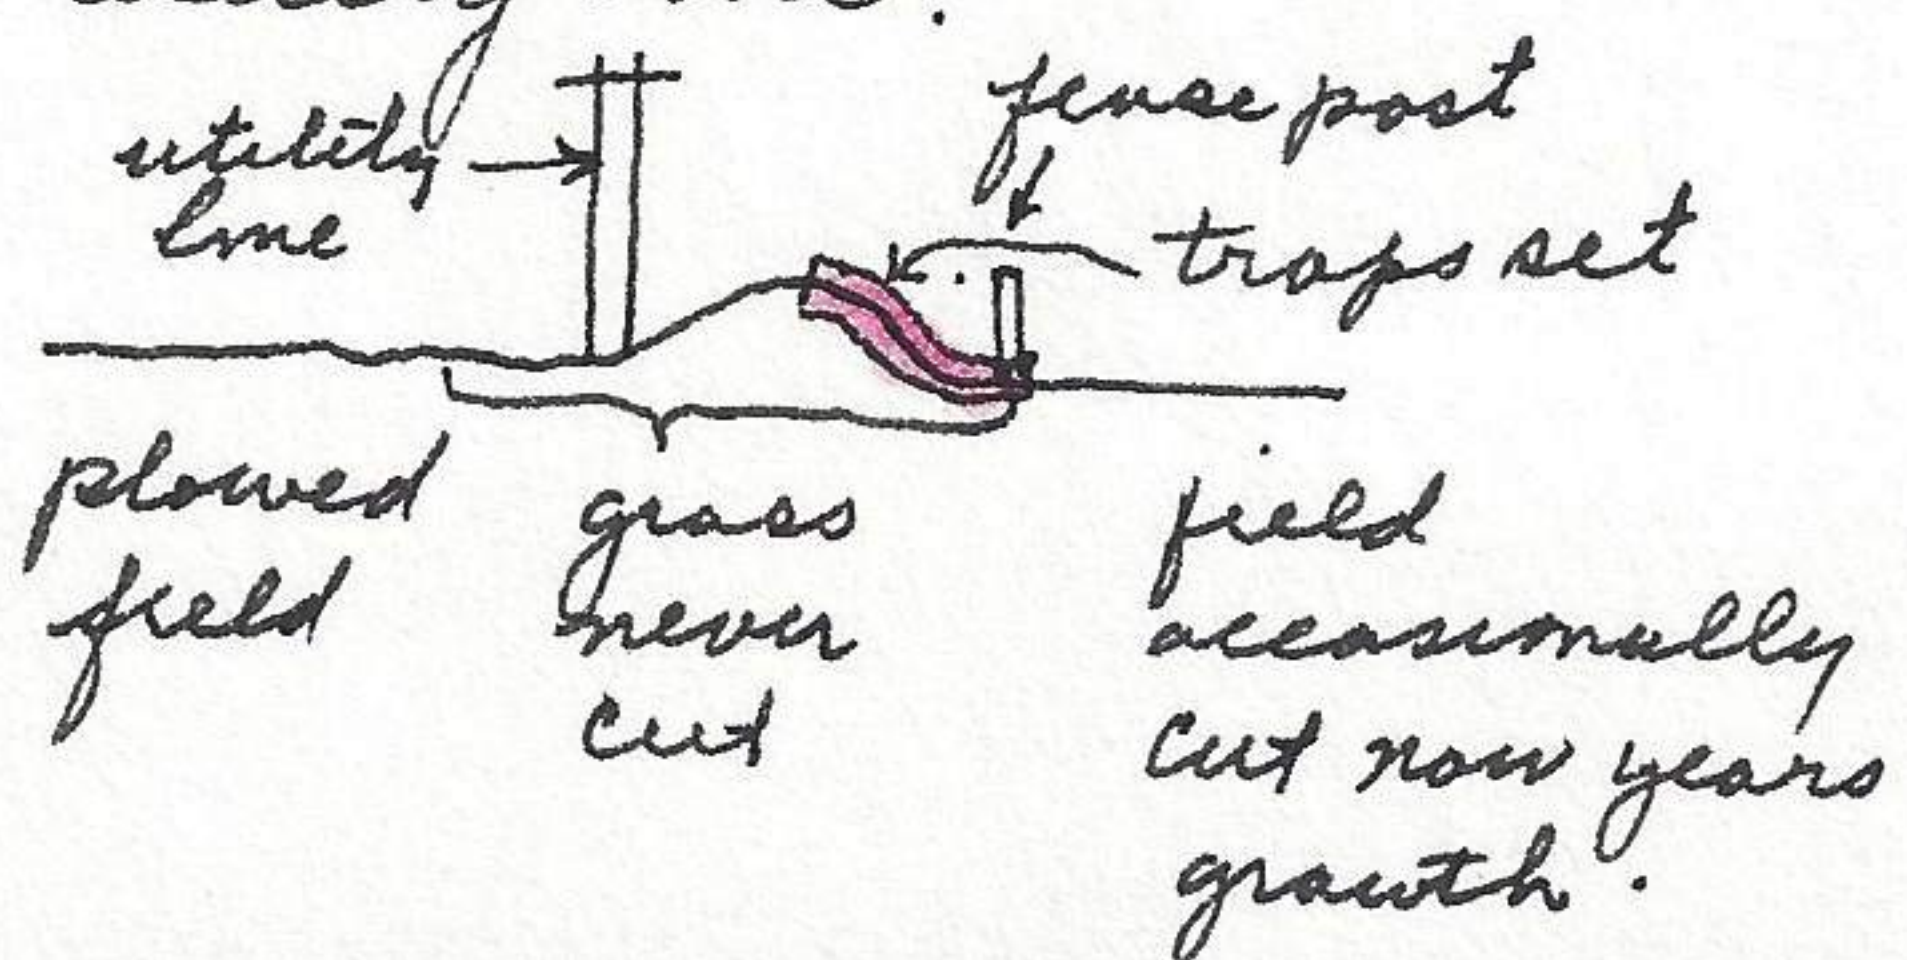 utility line.
utility
line
fense post
traps set
plowed
field
grass
never
cut
field
occasionally
cut now years
growth.